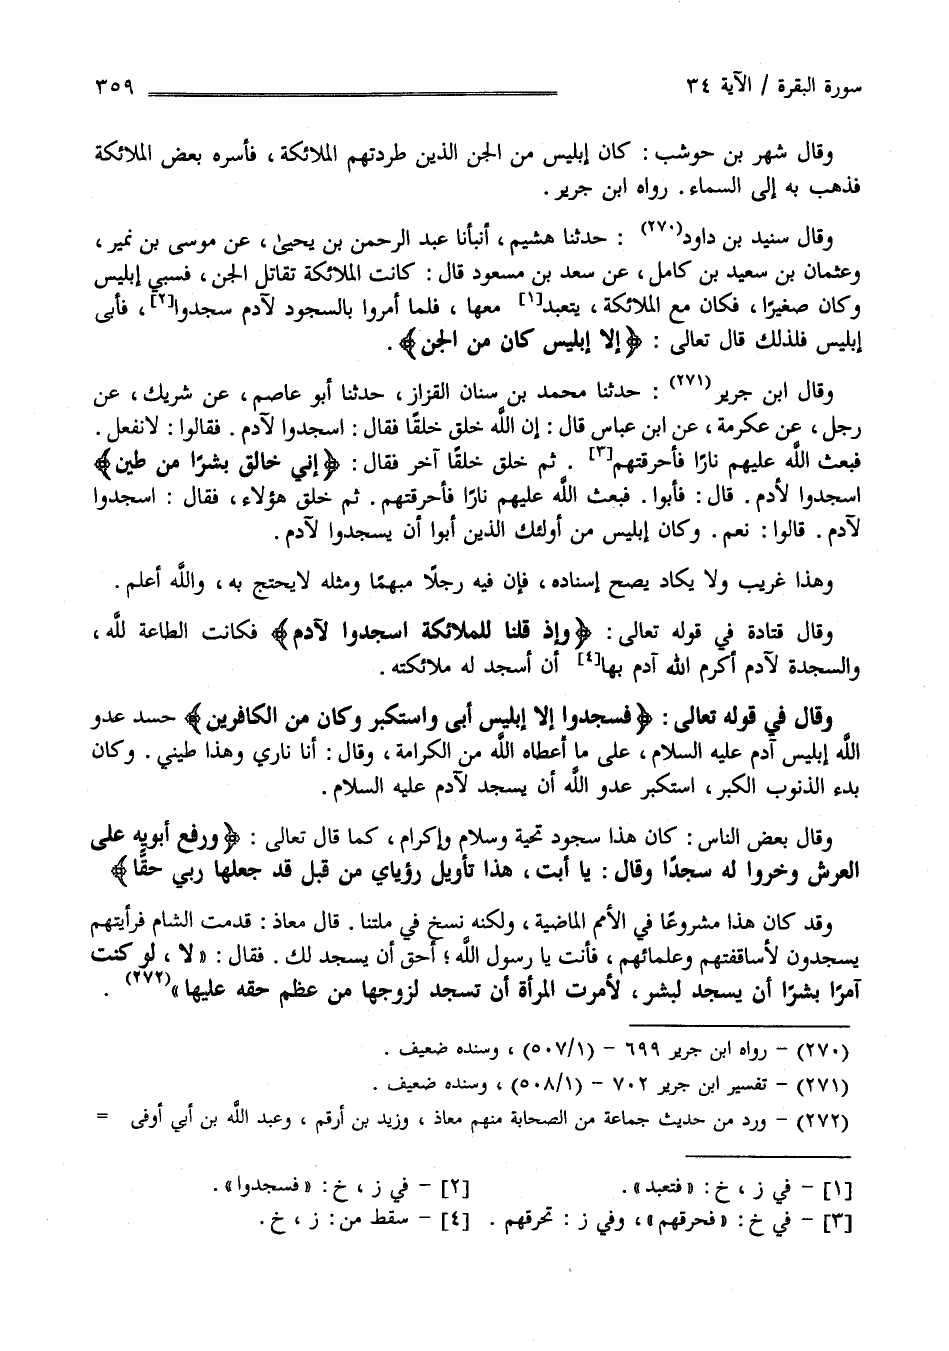 سورة البقرة / الآية ٣٤ ٣٥٩
وقال شهر بن حوشب : كان إبليس من الجن الذين طردتهم الملائكة ، فأسره بعض الملائكة
فذهب به إلى السماء . رواه ابن جرير .
وقال سنيد بن داود(٢٧٠) : حدثنا هشيم ، أنبأنا عبد الرحمن بن يحيىٰ ، عن موسى بن نمير ،
وعثمان بن سعيد بن كامل ، عن سعد بن مسعود قال : كانت الملائكة تقاتل الجن ، فسبي إبليس
وكان صغيرًا ، فكان مع الملائكة ، يتعبد[١] معها ، فلما أمروا بالسجود لآدم سجدوا[٢] ، فأبى
إبليس فلذلك قال تعالى : ﴿إلا إبليس كان من الجن﴾ .
وقال ابن جرير(٢٧١) : حدثنا محمد بن سنان القزاز ، حدثنا أبو عاصم ، عن شريك ، عن
رجل ، عن عكرمة ، عن ابن عباس قال : إن اللَّه خلق خلقًا فقال : اسجدوا لآدم . فقالوا : لانفعل .
فبعث اللَّه عليهم نارًا فأحرقتهم[٣] . ثم خلق خلقًا آخر فقال : ﴿إني خالق بشرًا من طين﴾
اسجدوا لأدم . قال : فأبوا . فبعث اللَّه عليهم نارًا فأحرقتهم . ثم خلق هؤلاء ، فقال : اسجدوا
لآدم . قالوا : نعم . وكان إبليس من أولئك الذين أبوا أن يسجدوا لآدم .
وهذا غريب ولا يكاد يصح إسناده ، فإن فيه رجلًا مبهمًا ومثله لايحتج به ، واللَّه أعلم .
وقال قتادة في قوله تعالى : ﴿وإذ قلنا للملائكة اسجدوا لآدم﴾ فكانت الطاعة للَّه ،
والسجدة لآدم أكرم الله آدم بها[٤] أن أسجد له ملائكته .
وقال في قوله تعالى : ﴿فسجدوا إلا إبليس أبى واستكبر وكان من الكافرين﴾ حسد عدو
اللَّه إبليس آدم عليه السلام ، على ما أعطاه اللَّه من الكرامة ، وقال : أنا ناري وهذا طيني . وكان
بدء الذنوب الكبر ، استكبر عدو اللَّه أن يسجد لآدم عليه السلام .
وقال بعض الناس : كان هذا سجود تحية وسلام وإكرام ، كما قال تعالى : ﴿ورفع أبويه على
العرش وخروا له سجدًا وقال : يا أبت ، هذا تأويل رؤياي من قبل قد جعلها ربي حقًّا﴾
وقد كان هذا مشروعًا في الأمم الماضية ، ولكنه نسخ في ملتنا . قال معاذ : قدمت الشام فرأيتهم
يسجدون لأساقفتهم وعلمائهم ، فأنت يا رسول اللَّه ؛ أحق أن يسجد لك . فقال : «لا ، لو كنت
آمرًا بشرًا أن يسجد لبشر ، لأمرت المرأة أن تسجد لزوجها من عظم حقه عليها»(٢٧٢) .
(٢٧٠) - رواه ابن جرير ٦٩٩ - (١/ ٥٠٧) ، وسنده ضعيف .
(٢٧١) - تفسير ابن جرير ٧٠٢ - (١/ ٥٠٨) ، وسنده ضعيف .
(٢٧٢) - ورد من حديث جماعة من الصحابة منهم معاذ ، وزيد بن أرقم ، وعبد اللَّه بن أبي أوفى =
[١] - في ز ، خ : «فتعبد» . [٢] - في ز ، خ : «فسجدوا» .
[٣] - في خ : «فحرقهم» ، وفي ز : تحرقهم . [٤] - سقط من : ز ، خ .